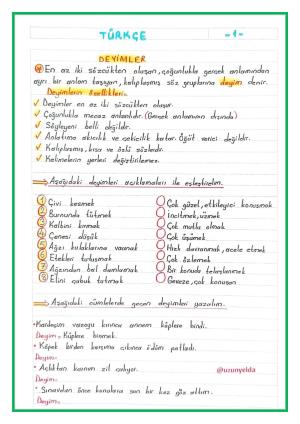 TÜRKÇE -1-
DEYİMLER
En az iki sözcükten oluşan, çoğunlukla gerçek anlamından
ayrı bir anlam taşıyan, kalıplaşmış söz gruplarına deyim denir.
Deyimlerin özellikleri:
✓ Deyimler en az iki sözcükten oluşur.
✓ Çoğunlukla mecaz anlamlıdır. (Gerçek anlamının dışında)
✓ Söyleyeni belli değildir.
✓ Anlatıma akıcılık ve çekicilik katar. Öğüt verici değildir.
✓ Kalıplaşmış, kısa ve özlü sözlerdir.
✓ Kelimelerin yerleri değiştirilemez.
Aşağıdaki deyimleri açıklamaları ile eşleştirelim.
1 Çivi kesmek Çok güzel, etkileyici konuşmak
2 Burnunda tütmek İncitmek, üzmek
3 Kalbini kırmak Çok mutlu olmak
4 Çenesi düşük Çok üşümek
5 Ağzı kulaklarına varmak Hızlı davranmak, acele etmek
6 Etekleri tutuşmak Çok özlemek
7 Ağzından bal damlamak Bir konuda telaşlanmak
8 Elini çabuk tutmak Geveze, çok konuşan
Aşağıdaki cümlelerde geçen deyimleri yazalım.
• Kardeşim vazoyu kırınca annem küplere bindi.
Deyim= Küplere binmek.
• Köpek birden karşıma çıkınca ödüm patladı.
Deyim=
• Açlıktan karnım zil çalıyor.
@uzunyelda
Deyim=
• Sınavdan önce konulara son bir kez göz attım.
Deyim=